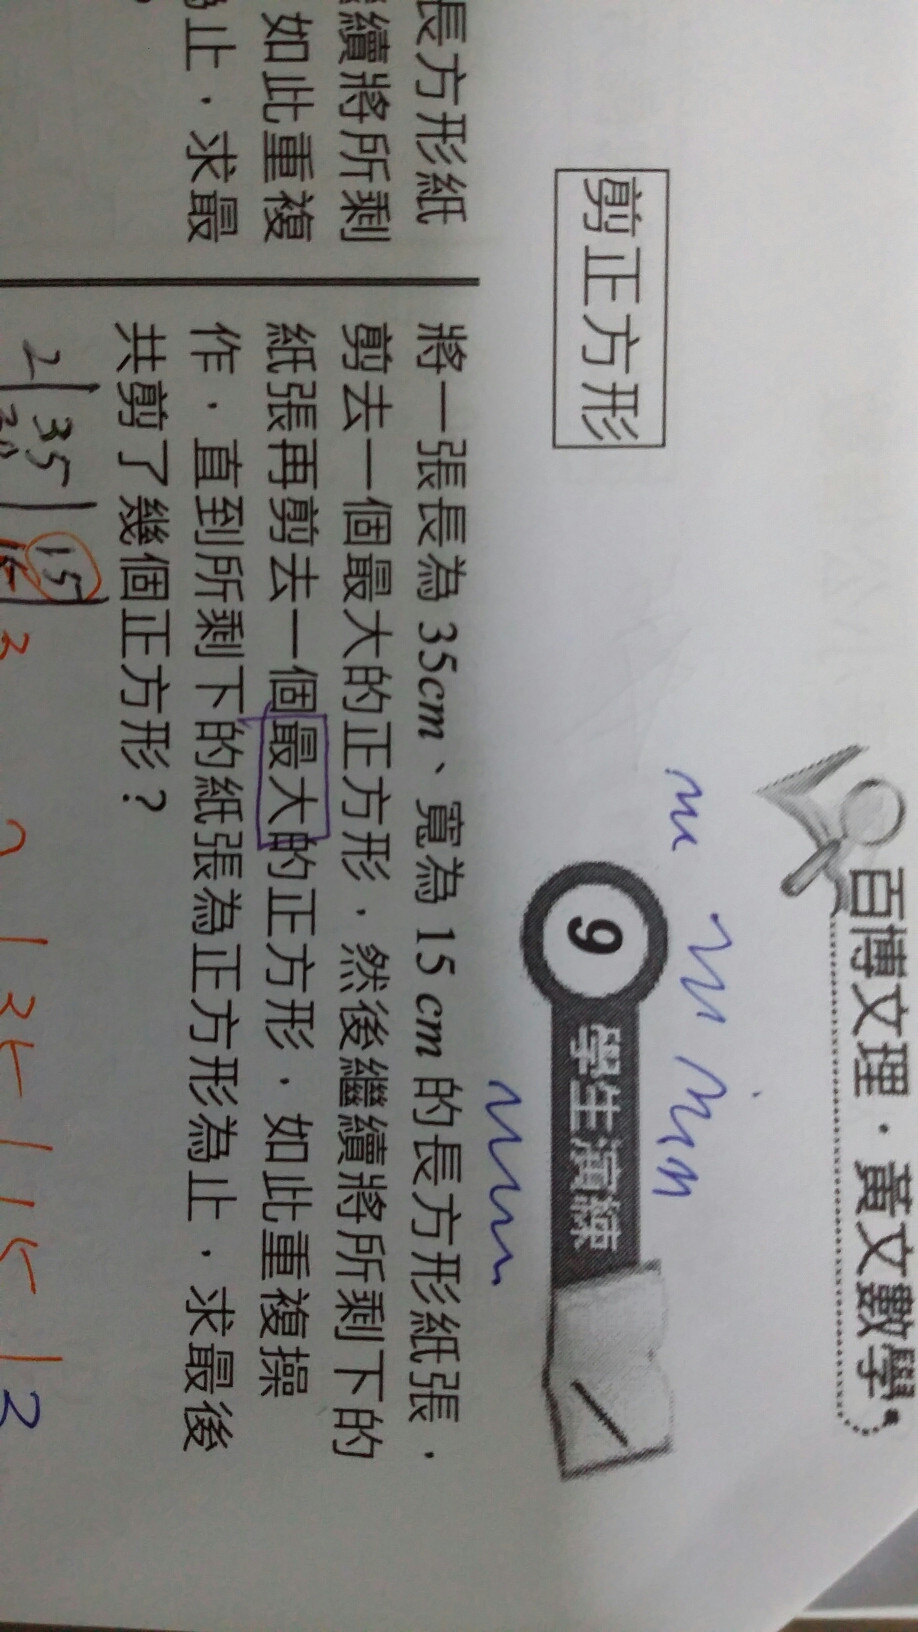 百博文理．黃文數學
剪正方形
9 學生演練
長方形紙
續將所剩
如此重複
止，求最
將一張長為 35cm、寬為 15 cm 的長方形紙張，
剪去一個最大的正方形，然後繼續將所剩下的
紙張再剪去一個最大的正方形，如此重複操
作，直到所剩下的紙張為正方形為止，求最後
共剪了幾個正方形？
2 35 15
3
2